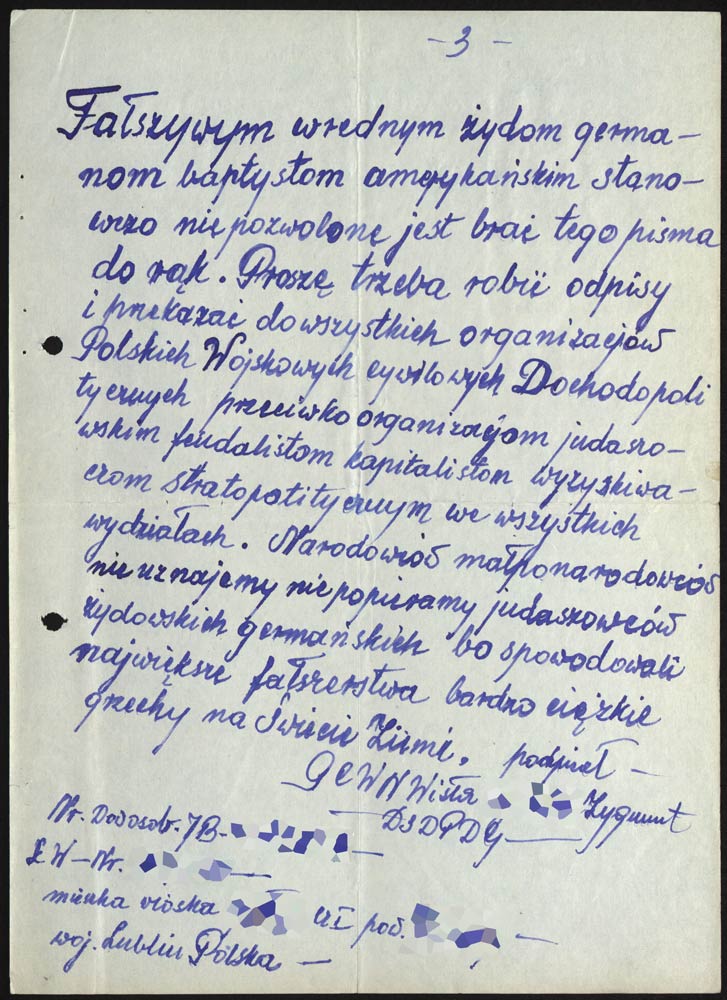 - 3 -
Fałszywym wrednym żydom germa-
nom baptystom amerykańskim stano-
wczo niepozwolone jest brać tego pisma
do rąk. Proszę trzeba robić odpisy
i przekazać do wszystkich organizacjów
Polskich Wojskowych cywilowych Dochodopoli
tycznych przeciwko organizacjom judaszo-
wskim feudalistom kapitalistom wyzyskiwa-
czom stratopolitycznym we wszystkich
wydziałach. Narodowców małponarodowców
nie uznajemy niepopieramy judaszowców
żydowskich germańskich bo spowodowali
największe fałszerstwa bardzo ciężkie
grzechy na Świecie Ziemi. podpisał -
GCWN Wisła Zygmunt
- DSDPDG -
Nr. Dow osob. 7B- -
EW - Nr. -
mieszka wioska pow. -
woj. Lublin Polska -